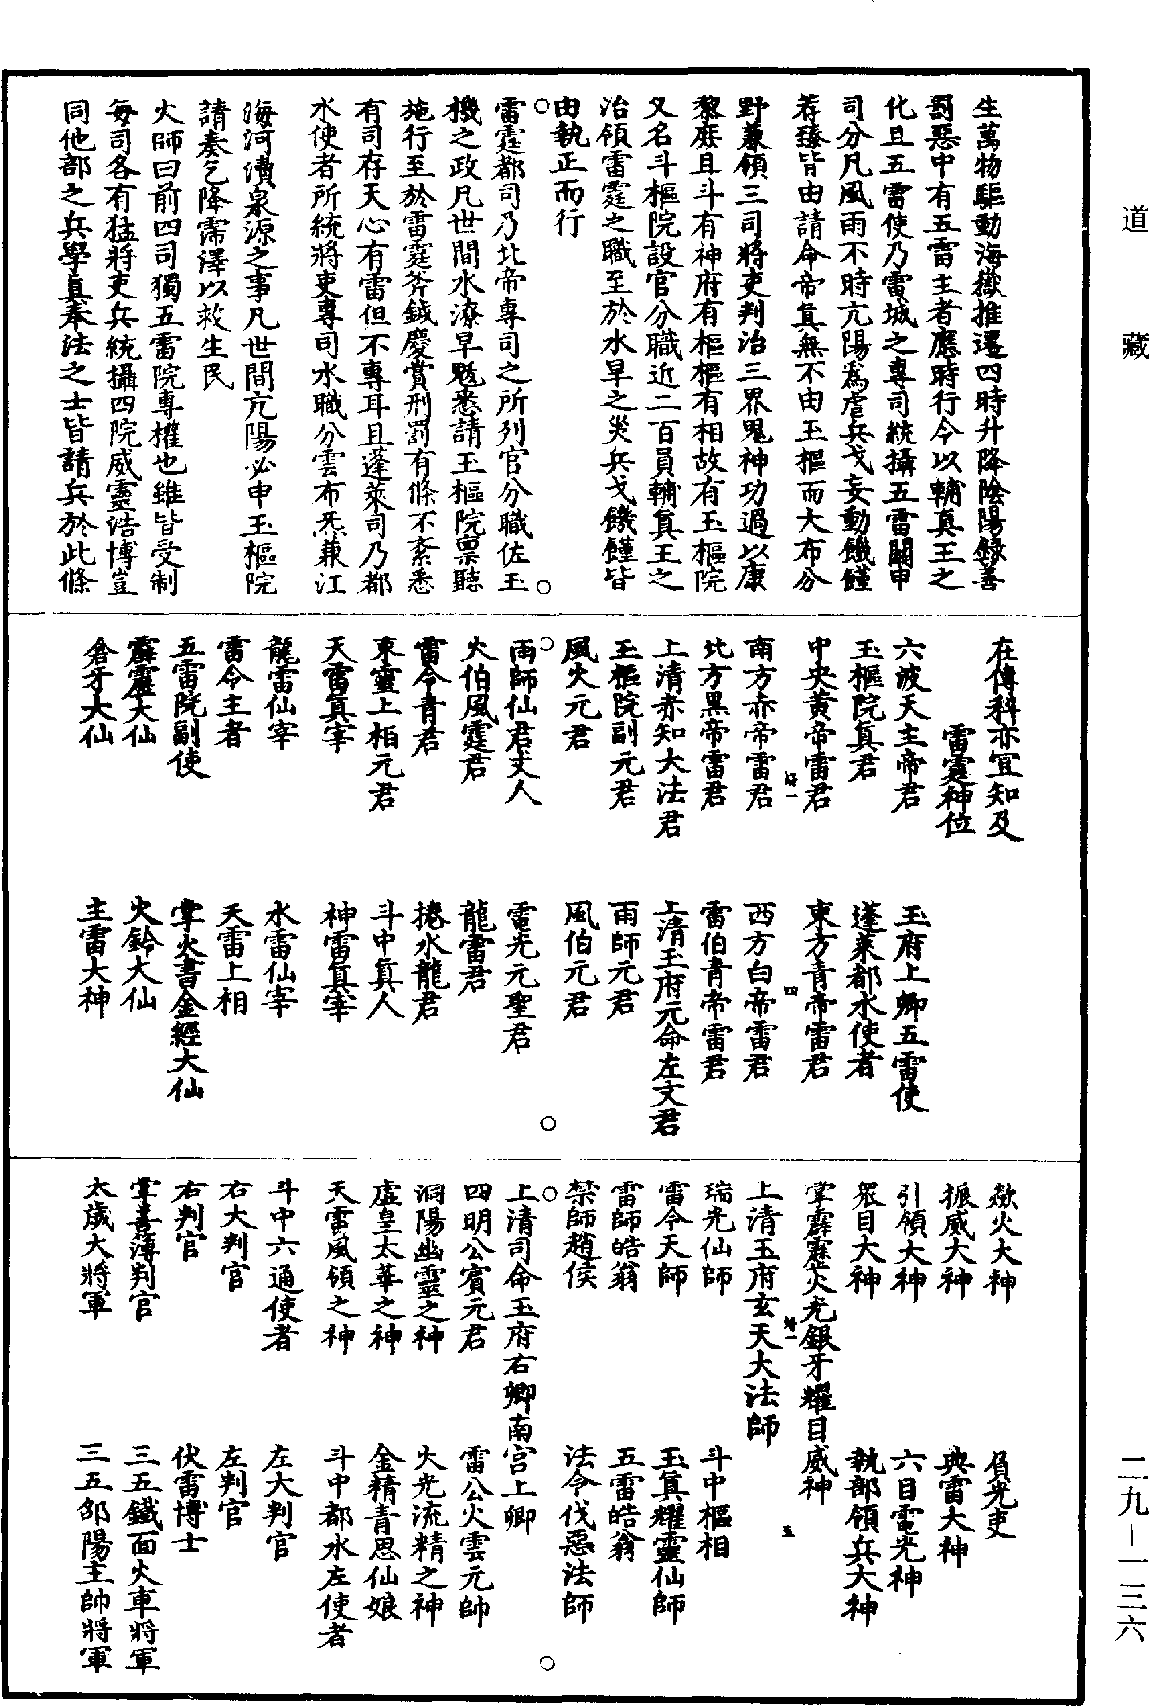 道藏
二九—一三六
生萬物驅動海嶽推遷四時升降陰陽錄善
罰惡中有五雷主者應時行令以輔真王之
化且五雷使乃雷城之專司統攝五雷關申
司分凡風雨不時亢陽為虐兵戈妄動饑饉
荐臻皆由請命帝真無不由玉樞而大布分
野兼領三司將吏判治三界鬼神功過以康
黎庶且斗有神府有樞樞有相故有玉樞院
又名斗樞院設官分職近二百員輔真王之
治領雷霆之職至於水旱之災兵戈饑饉皆
由執正而行
雷霆都司乃北帝專司之所列官分職佐玉
機之政凡世間水潦旱魃悉請玉樞院稟聽
施行至於雷霆斧鉞慶賞刑罰有條不紊悉
有司存天心有雷但不專耳且蓬萊司乃都
水使者所統將吏專司水職分雲布炁兼江
海河瀆泉源之事凡世間亢陽必申玉樞院
請奏乞降霈澤以救生民
火師曰前四司獨五雷院專權也雖皆受制
每司各有猛將吏兵統攝四院威靈浩博豈
同他部之兵學真奉法之士皆請兵於此條
在傳科亦宜知及
雷霆神位
六波天主帝君
玉府上卿五雷使
玉樞院真君
蓬萊都水使者
中央黃帝雷君
東方青帝雷君
南方赤帝雷君
西方白帝雷君
北方黑帝雷君
雷伯青帝雷君
上清赤知大法君
上清玉府元命左文君
玉樞院副元君
雨師元君
風火元君
風伯元君
雨師仙君丈人
電光元聖君
火伯風霆君
龍雷君
雷令青君
捲水龍君
東靈上相元君
斗中真人
天雷真宰
神雷真宰
龍雷仙宰
水雷仙宰
雷令主者
天雷上相
五雷院副使
掌火書金經大仙
霹靂大仙
火鈴大仙
倉牙大仙
主雷大神
欻火大神
負光吏
振威大神
典雷大神
引領大神
六目電光神
眾目大神
執部領兵大神
掌霹靂火光銀牙耀目威神
上清玉府玄天大法師
瑞光仙師
斗中樞相
雷令天師
玉真耀靈仙師
雷師皓翁
五雷皓翁
禁師趙侯
法令伐惡法師
上清司命玉府右卿南宮上卿
四明公賓元君
雷公火雲元帥
洞陽幽靈之神
火光流精之神
虛皇太華之神
金精青思仙娘
天雷風領之神
斗中都水左使者
斗中六通使者
左大判官
右大判官
左判官
右判官
伏雷博士
掌善薄判官
三五鐵面火車將軍
太歲大將軍
三五邵陽主帥將軍